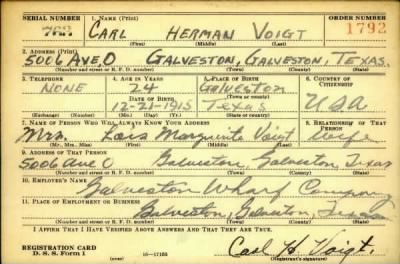 SERIAL NUMBER 1. NAME (Print) ORDER NUMBER
CARL HERMAN VOIGT 1792
(First) (Middle) (Last)
2. ADDRESS (Print)
5006 AVE O GALVESTON, GALVESTON, TEXAS.
(Number and street or R. F. D. number) (Town) (County) (State)
3. TELEPHONE 4. AGE IN YEARS 5. PLACE OF BIRTH 6. COUNTRY OF CITIZENSHIP
NONE 24 Galveston
DATE OF BIRTH (Town or county)
12-21-1915 Texas USA
(Exchange) (Number) (Mo.) (Day) (Yr.) (State or country)
7. NAME OF PERSON WHO WILL ALWAYS KNOW YOUR ADDRESS 8. RELATIONSHIP OF THAT PERSON
Mrs. Lois Marguerite Voigt Wife
(Mr., Mrs., Miss) (First) (Middle) (Last)
9. ADDRESS OF THAT PERSON
5006 Ave O Galveston, Galveston, Texas
(Number and street or R. F. D. number) (Town) (County) (State)
10. EMPLOYER'S NAME
Galveston Wharf Company
11. PLACE OF EMPLOYMENT OR BUSINESS
Galveston, Galveston, Texas
(Number and street or R. F. D. number) (Town) (County) (State)
I AFFIRM THAT I HAVE VERIFIED ABOVE ANSWERS AND THAT THEY ARE TRUE.
REGISTRATION CARD
D. S. S. Form 1 16—17105 Carl H. Voigt.
(Registrant's signature)